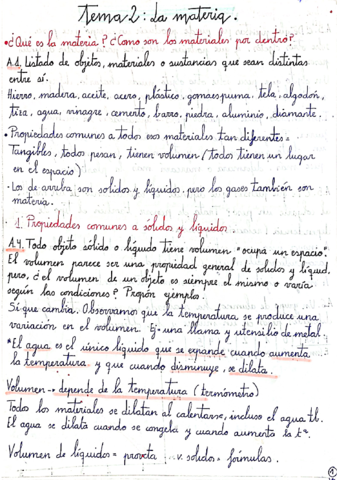 Tema 2: La materia.
• ¿Qué es la materia? ¿Como son los materiales por dentro?
A.1. Listado de objetos, materiales o sustancias que sean distintas
entre sí.
Hierro, madera, aceite, acero, plástico, gomaespuma, tela, algodón,
tiza, agua, vinagre, cemento, barro, piedra, aluminio, diamante.
• Propiedades comunes a todos esos materiales tan diferentes =
Tangibles, todos pesan, tienen volumen (todos tienen un lugar
en el espacio)
- Los de arriba son solidos y líquidos, pero los gases también son
materia.
1. Propiedades comunes a sólidos y líquidos
A.4. Todo objeto sólido o líquido tiene volumen "ocupa un espacio".
El volumen parece ser una propiedad general de solidos y líquid.
pero, ¿el volumen de un objeto es siempre el mismo o varía
según las condiciones? Propón ejemplos.
Sí que cambia. Observamos que la temperatura se produce una
variación en el volumen. Ej - una llama y utensilio de metal.
* El agua es el único líquido que se expande cuando aumenta
la temperatura, y que cuando disminuye, se dilata.
Volumen → depende de la temperatura (termómetro)
Todo los materiales se dilatan al calentarse, incluso el agua tb.
El agua se dilata cuando se congela y cuando aumenta la tª.
Volumen de líquidos = proveta v. solidos = fórmulas.
1